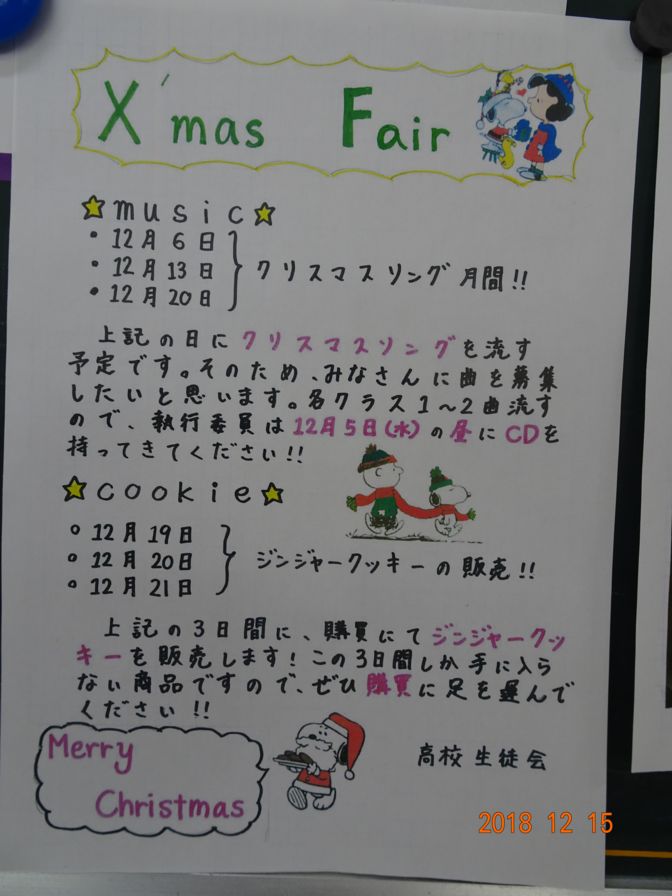 X'mas Fair
★music★
• 12月6日
• 12月13日
• 12月20日
クリスマスソング月間!!
上記の日にクリスマスソングを流す
予定です。そのため、みなさんに曲を募集
したいと思います。各クラス1~2曲流す
ので、執行委員は12月5日(水)の昼にCDを
持ってきてください!!
★cookie★
○ 12月19日
○ 12月20日
○ 12月21日
ジンジャークッキーの販売!!
上記の3日間に、購買にてジンジャークッ
キーを販売します!この3日間しか手に入ら
ない商品ですので、ぜひ購買に足を運んで
ください!!
Merry
Christmas
高校生徒会
2018 12 15